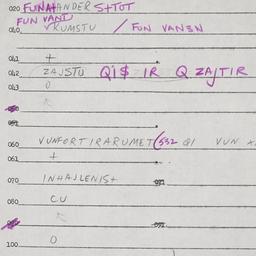 020 FUNAHANDER S+TOT
FUN VANI
040 VKUMSTU / FUN VANEN
041 +
042 ZAJSTU QI$ IR Q ZAJTIR
043 0
060 VUNFORTIRARUMET (532 QI VUN
061 +
070 INHAJLENIS+
080 CU
100 0